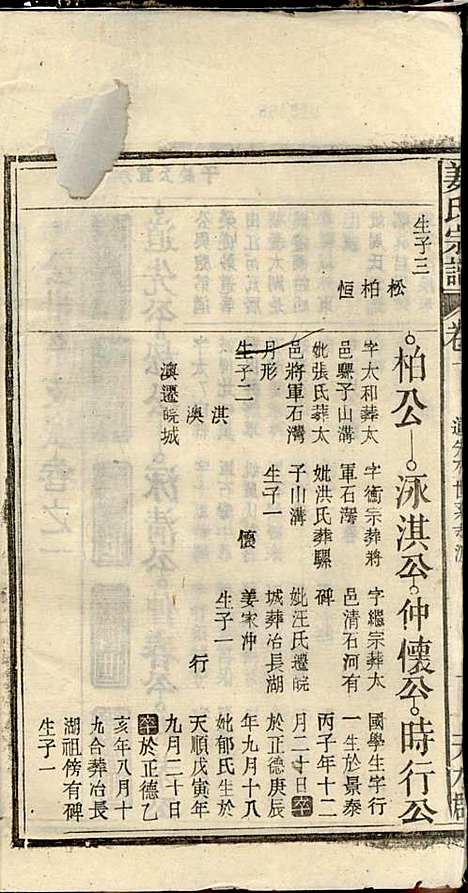 姜氏宗譜
卷
生子三
松
柏
恒
柏公
字太和葬太
邑騾子山溝
妣張氏葬太
邑將軍石灣
月形
生子二
淇
澳
澳遷皖城
泳淇公
字衛宗葬將
軍石灣
妣洪氏葬騾
子山溝
生子一
懷
仲懷公
字繼宗葬太
邑清石河有
碑
妣汪氏遷皖
城葬冶長湖
姜家沖
生子一
行
時行公
國學生字行
一生於景泰
丙子年十二
月二十日卒
於正德庚辰
年九月十八
妣郁氏生於
天順戊寅年
九月二十日
卒於正德乙
亥年八月十
九合葬冶長
湖祖傍有碑
生子一